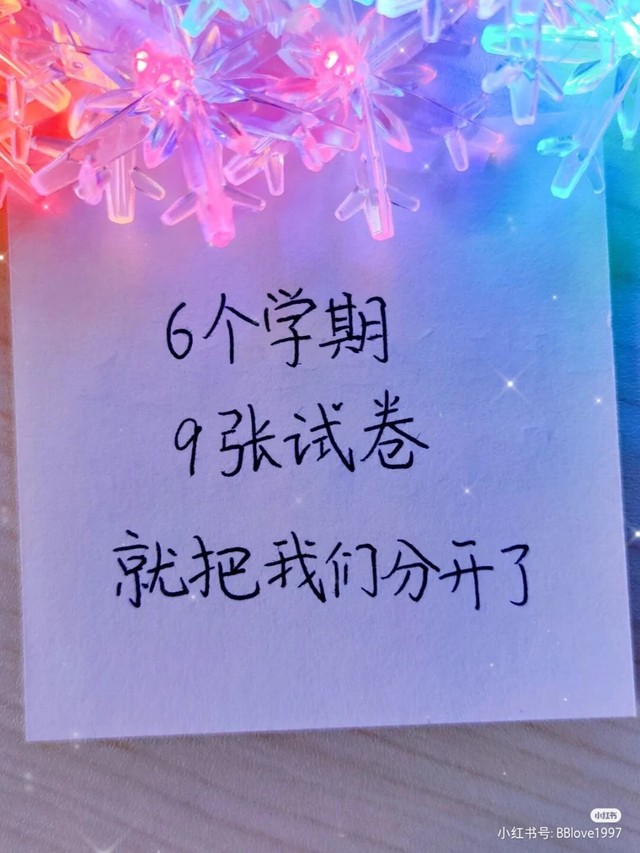 6个学期
9张试卷
就把我们分开了
小红书
小红书号: BBlove1997